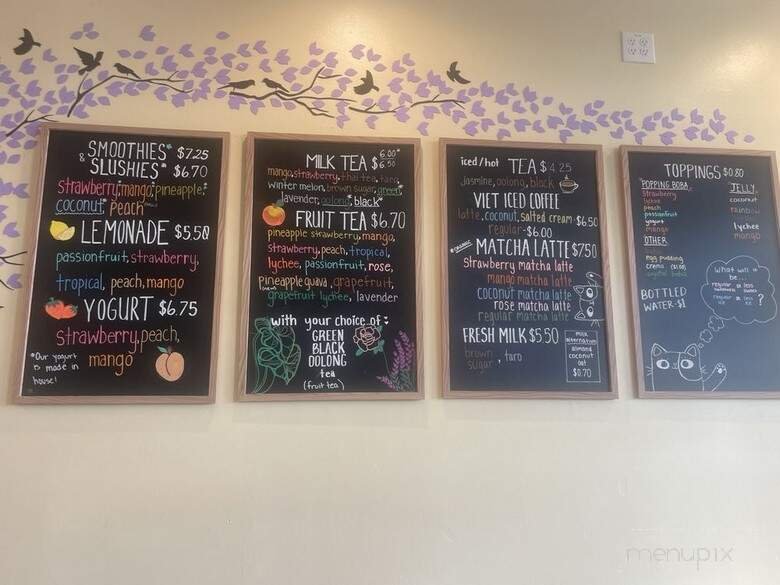 SMOOTHIES* $7.25
& SLUSHIES* $6.70
strawberry, mango, pineapple,*
coconut* peach
LEMONADE $5.50
passionfruit, strawberry,
tropical, peach, mango
YOGURT $6.75
strawberry, peach,
mango
*Our yogurt
is made in
house!
MILK TEA 6.00*
$6.50
mango, strawberry, thai tea, taro,
winter melon, brown sugar, green,
lavender, oolong, black*
FRUIT TEA $6.70
pineapple strawberry, mango,
strawberry, peach, tropical,
lychee, passionfruit, rose,
pineapple guava, grapefruit,
grapefruit lychee, lavender
with your choice of:
GREEN
BLACK
OOLONG
tea
(fruit tea)
iced/hot TEA $4.25
jasmine, oolong, black
VIET ICED COFFEE
latte, coconut, salted cream-$6.50
regular-$6.00
*ORGANIC MATCHA LATTE $7.50
strawberry matcha latte
mango matcha latte
coconut matcha latte
rose matcha latte
regular matcha latte
FRESH MILK $5.50
brown sugar, taro
milk
alternative
almond
coconut
oat
$0.70
TOPPINGS $0.80
POPPING BOBA
strawberry
lychee
peach
passionfruit
yogurt
mango
OTHER
egg pudding
crema ($1.00)
JELLY
coconut
rainbow
lychee
mango
BOTTLED
WATER-$1
what will it
be...
regular or less
sweetness sweet
regular or less
ice ice ?
menupix